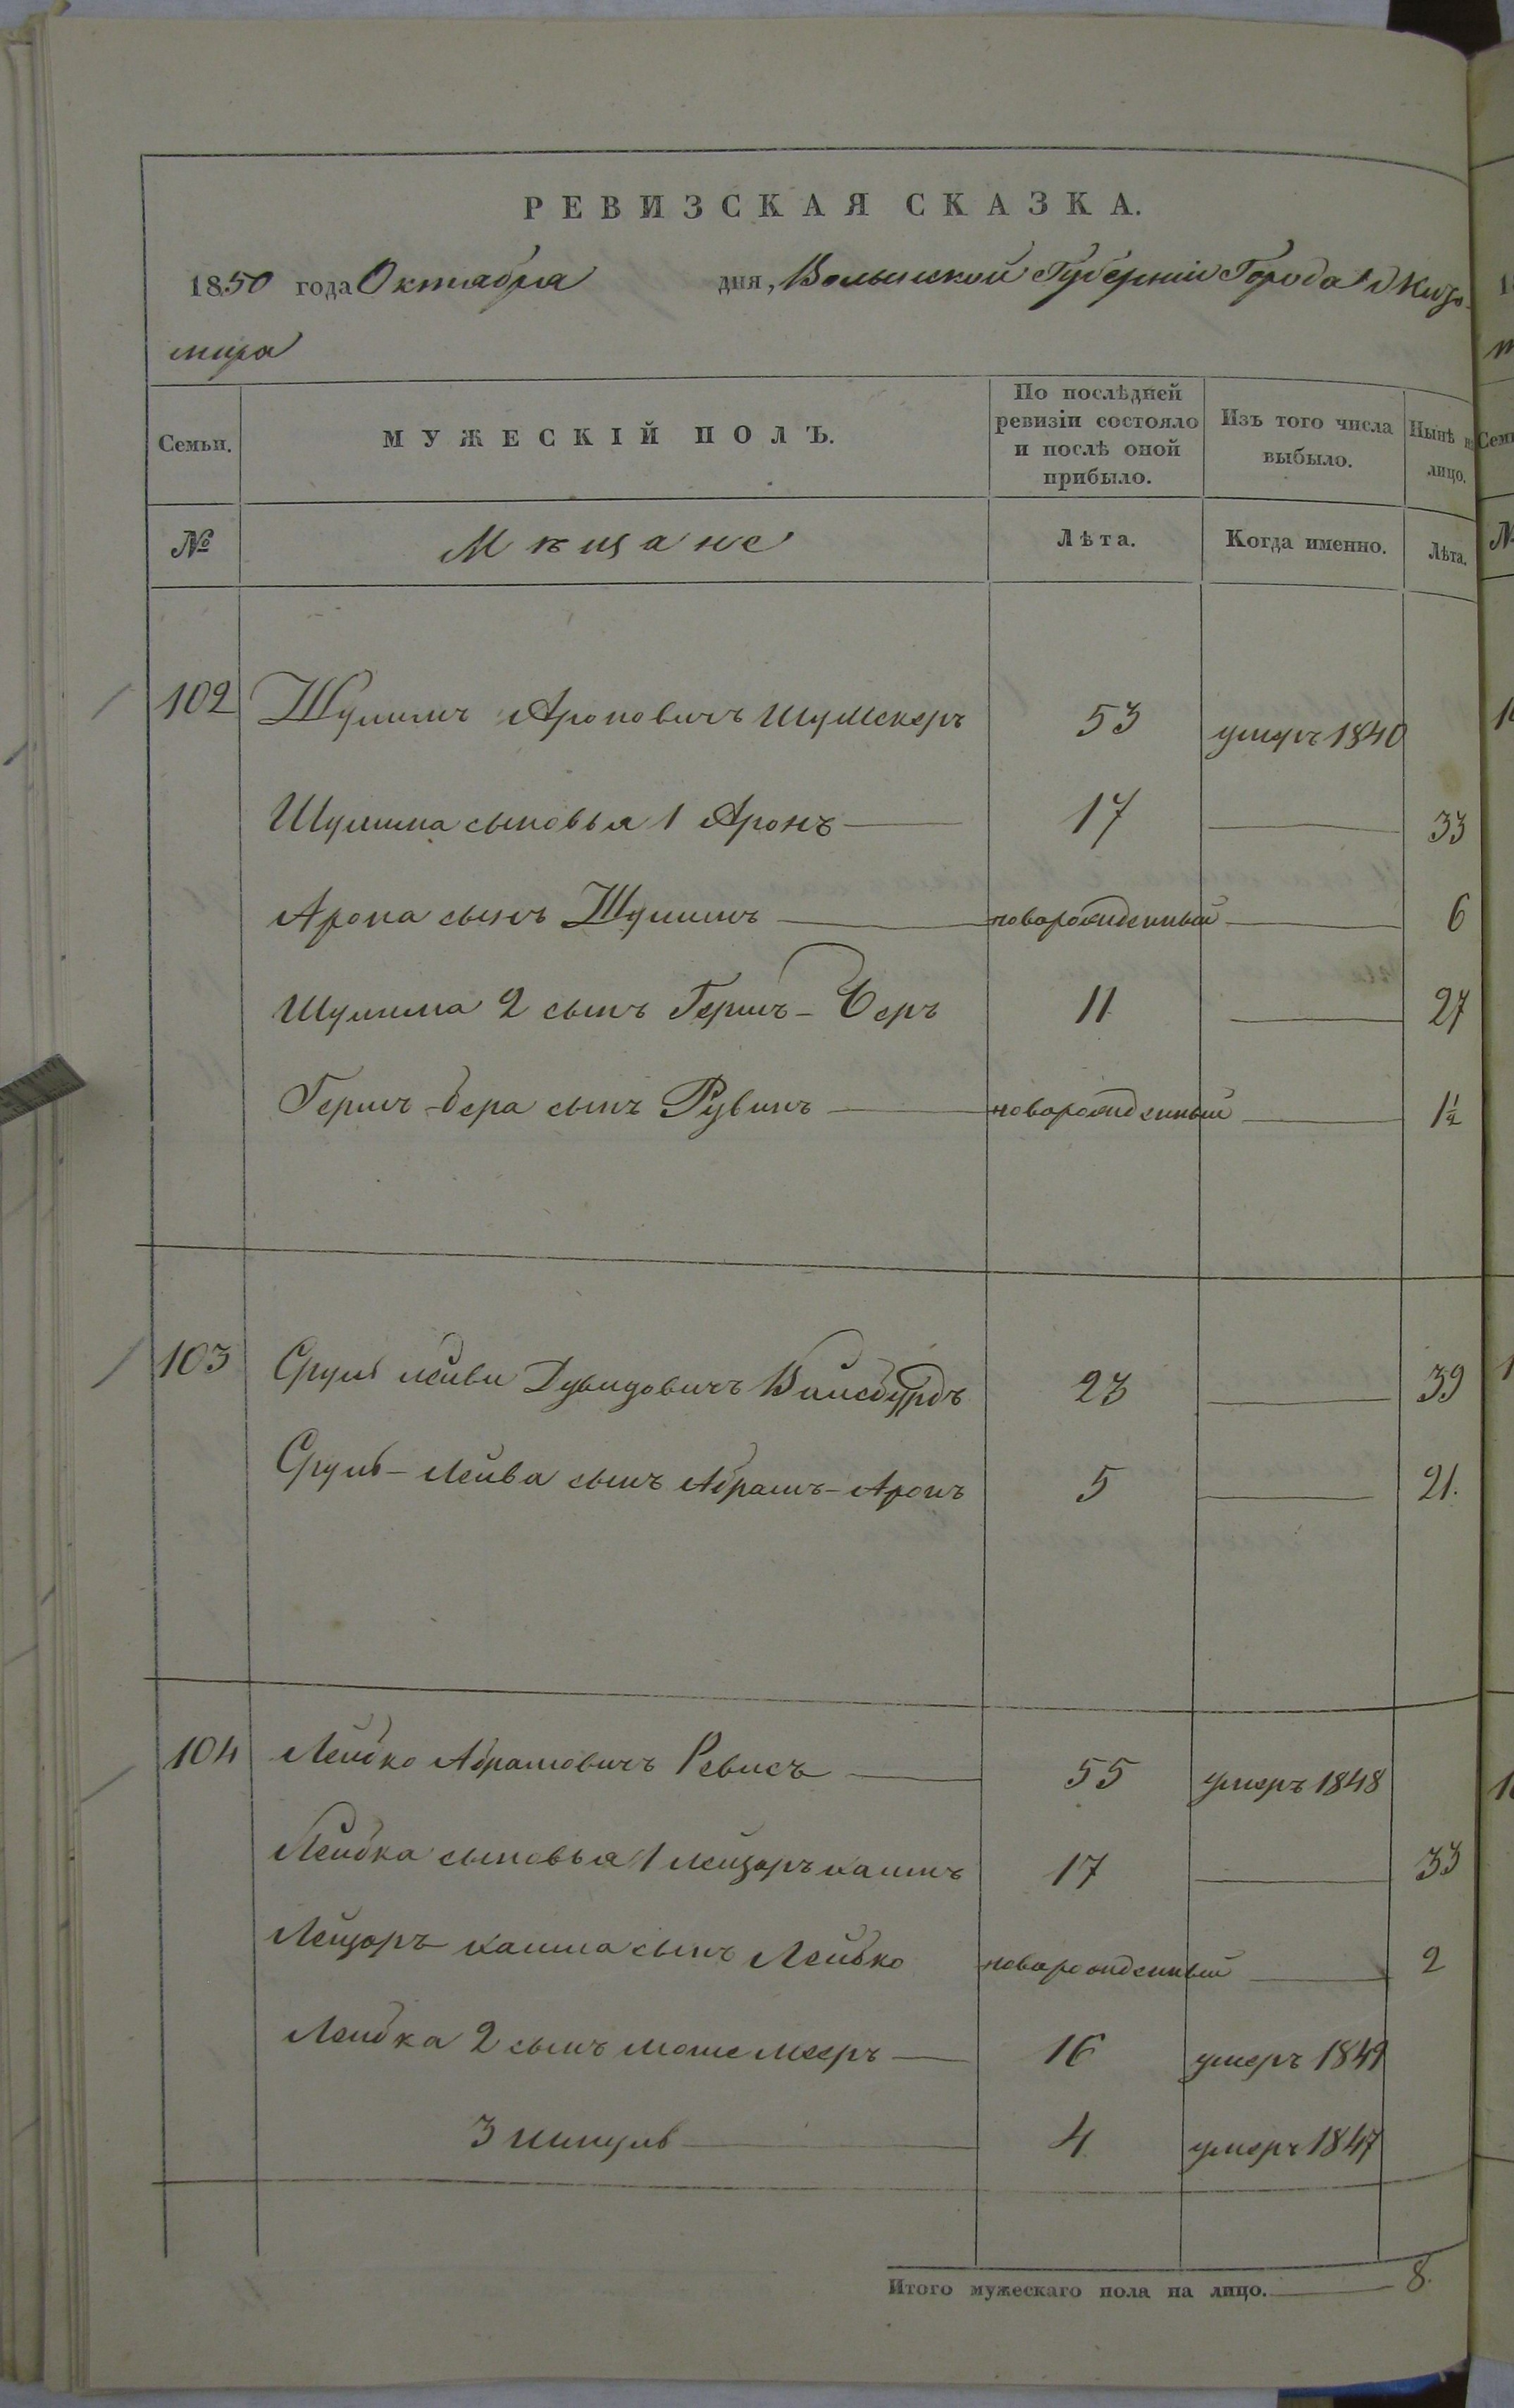 РЕВИЗСКАЯ СКАЗКА.
1850 года Октября дня, Волынской Губерніи Города Жито-
мира
Семьи. МУЖЕСКІЙ ПОЛЪ. По послѣдней ревизіи состояло и послѣ оной прибыло. Изъ того числа выбыло. Нынѣ на лицо.
№ Мѣщане Лѣта. Когда именно. Лѣта.
102 Шулимъ Ароновичъ Шумскеръ 53 умеръ 1840
Шулима сыновья 1 Аронъ 17 33
Арона сынъ Шулимъ новорожденный 6
Шулима 2 сынъ Гершъ-Беръ 11 27
Гершъ-бера сынъ Рувинъ новорожденный 1½
103 Сруль лейви Дувидовичъ Вайсбурдъ 23 39
Сруль-Лейва сынъ Абрамъ-Аронъ 5 21.
104 Лейбко Абрамовичъ Ревисъ 55 умеръ 1848
Лейбка сыновья 1 лейзоръ 17 33
Лейзоръ сынъ Лейбко новорожденный 2
Лейбка 2 сынъ моше мееръ 16 умеръ 1849
3 шмуль 4 умеръ 1847
Итого мужескаго пола на лицо. 8.